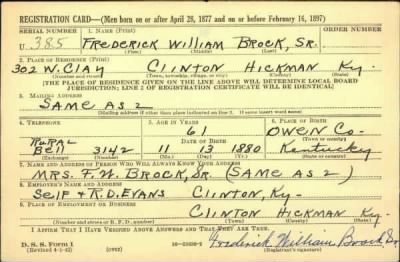 REGISTRATION CARD—(Men born on or after April 28, 1877 and on or before February 16, 1897)
SERIAL NUMBER 1. NAME (Print)
U 385 FREDERICK WILLIAM BROCK, SR.
(First) (Middle) (Last)
2. PLACE OF RESIDENCE (Print)
302 W. Clay CLINTON HICKMAN Ky.
(Number and street) (Town, township, village, or city) (County) (State)
[THE PLACE OF RESIDENCE GIVEN ON THE LINE ABOVE WILL DETERMINE LOCAL BOARD
JURISDICTION; LINE 2 OF REGISTRATION CERTIFICATE WILL BE IDENTICAL]
3. MAILING ADDRESS
SAME AS 2
[Mailing address if other than place indicated on line 2. If same insert word same]
4. TELEPHONE 5. AGE IN YEARS 6. PLACE OF BIRTH
61 OWEN CO.
RURAL DATE OF BIRTH (Town or county)
Bell 3142 11 13 1880 Kentucky
(Exchange) (Number) (Mo.) (Day) (Yr.) (State or country)
7. NAME AND ADDRESS OF PERSON WHO WILL ALWAYS KNOW YOUR ADDRESS
MRS. F. W. BROCK, SR. (SAME AS 2)
8. EMPLOYER'S NAME AND ADDRESS
Self & R.D. EVANS CLINTON, Ky.
9. PLACE OF EMPLOYMENT OR BUSINESS
CLINTON HICKMAN Ky.
(Number and street or R. F. D. number) (Town) (County) (State)
I AFFIRM THAT I HAVE VERIFIED ABOVE ANSWERS AND THAT THEY ARE TRUE.
D. S. S. Form 1 Frederick William Brock Sr
(Revised 4-1-42) (over) (Registrant's signature)